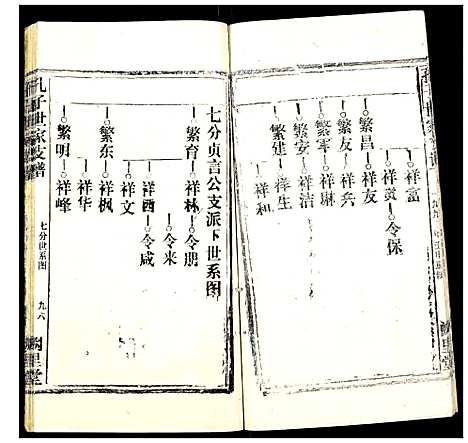 祥富
祥贲 令保
繁昌 祥友
繁友 祥兵
繁军 祥琳
繁安 祥洁
繁建 祥生
祥和
七分贞言公支派下世系图
繁育 祥林 令朋
令来
祥酉 令咸
繁东 祥文
祥枫
祥华
繁明 祥峰
孔子世家支谱
七分世系图
九八
阙里堂